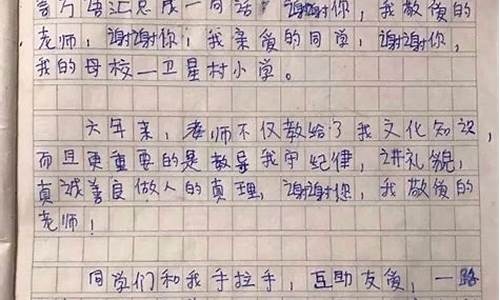 言万语汇总成一句话，谢谢你，我敬爱的
老师，谢谢你；我亲爱的同学，谢谢你，
我的母校—卫星村小学。
六年来，老师不仅教给了我文化知识，
而且更重要的是教导我守纪律，讲礼貌，
真诚善良做人的真理，谢谢您，我敬爱的
老师！
同学们和我手拉手，互助友爱，一路